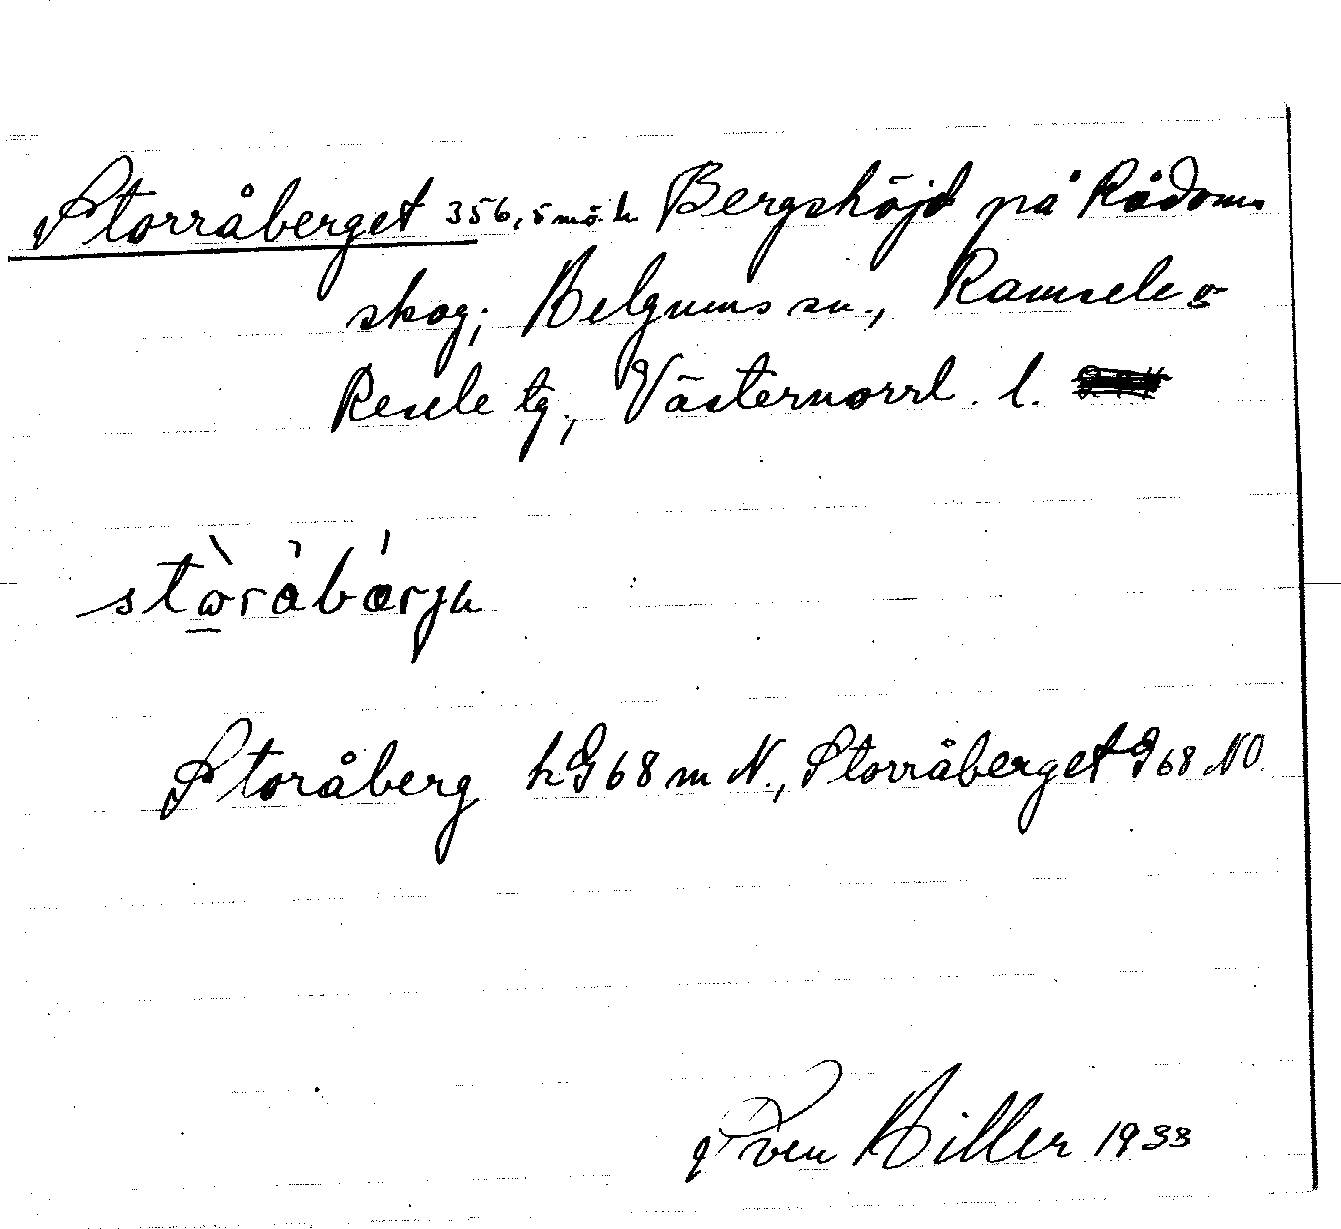 Storråberget 356,5 m ö. h Bergshöjd på Rådoms
skog; Helgums sn., Ramsele o
Resele tg., Västernorrl. l.
Storåberg hG 68 m N., Storråberget G 68 NO
Sven Hiller 1933